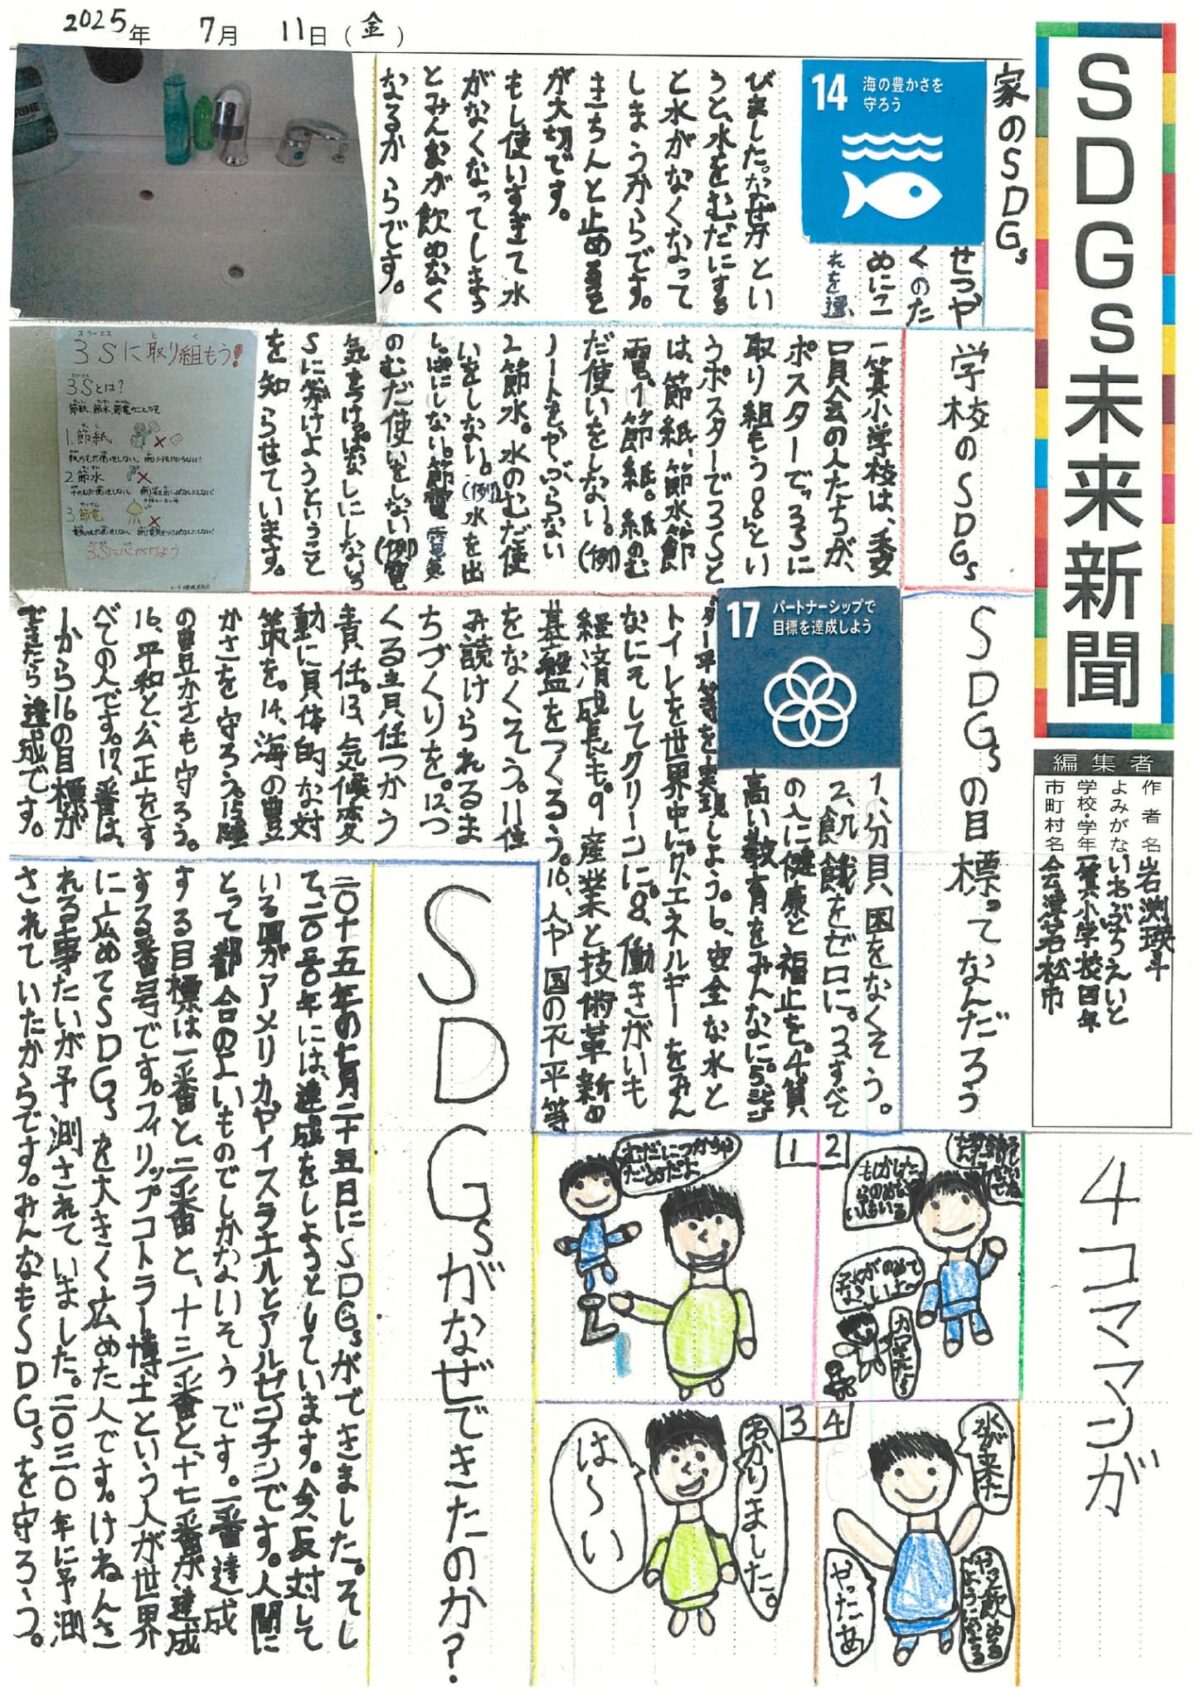 2025年 7月 11日（金）
SDGs未来新聞
編集者
作者名 岩渕瑛斗
よみがな いわぶちえいと
学校・学年 一箕小学校四年
市町村名 会津若松市
家のSDGs
14 海の豊かさを
守ろう
せつや
くのた
めにこ
れを選
びました。なぜかとい
うと、水をむだにする
と水がなくなって
しまうからです。
きちんと止めるを
が大切です。
もし使いすぎて水
がなくなってしまう
とみんなが飲めなく
なるからです。
学校のSDGs
一箕小学校は、委
員会の人たちが、
ポスターで「3Sに
取り組もう!!」とい
うポスターで3Sと
は、節紙、節水、節
電。1、節紙。紙のむ
だ使いをしない。(例)
ノートをやぶらない
2節水。水のむだ使
いをしない。(例)水を出
しっぱにしない。節電 電気
のむだ使いをしない(例)電
気をつけっぱなしにしない3
Sに分けようということ
を知らせています。
スリーエス
3Sに取り組もう!
3Sとは?
節紙、節水、節電のことだよ
1.節紙
2.節水
3.節電
3Sに心がけよう
SDGsの目標ってなんだろう
17 パートナーシップで
目標を達成しよう
1、分貝、国をなくそう。
2、飢餓をゼロに。3、すべて
の人に健康と福止を。4、質
高い教育をみんなに。5、ジェン
ダー平等を実現しよう。6、安全な水と
トイレを世界中に。7、エネルギーをみん
なにそしてクリーンに。8、働きがいも
経済成長も。9産業と技術革新の
基盤をつくろう。10、人や国の不平等
をなくそう。11住
み読けられるま
ちづくりを。12、つ
くる責任つかう
責任。13、気候変
動に具体的な対
策を。14、海の豊
かさを守ろう。15陸
の豊かさも守ろう。
16、平和と公正をす
べての人です。17、番は、
1から16の目標が
できたら達成です。
SDGsがなぜできたのか?
二〇十五年の七月二十五日にSDGsができました。そし
て、二〇三〇年には、達成をしようとしています。今、反対して
いる国がアメリカやイスラエルとアルゼンチンです。人間に
とって都合のよいものでしかないそうです。一番達成
する目標は一番と、二番と、十三番と、十七番が達成
する番号です。フィリップコトラー博士という人が世界
に広めてSDGsを大きく広めた人です。けねんさ
れる事たいが予測されていました。二〇三〇年に予測
されていたからです。みんなもSDGsを守ろう。
4コママンガ
1
むだにつかっちゃ
だめだよ
2
もしかしたら
水がのめて
ないよ〜
3
わかりました。
は〜い
4
水が来た
やっと飲める
ようになる
やったあ